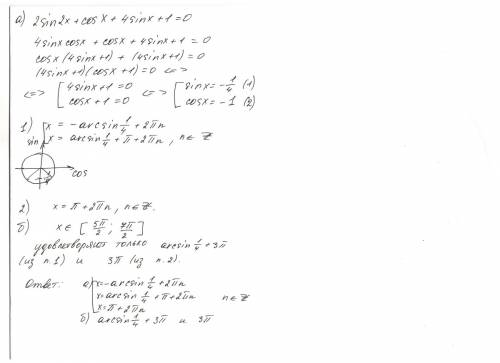 а) 2sin2x + cosx + 4sinx + 1 = 0
4sinxcosx + cosx + 4sinx + 1 = 0
cosx(4sinx+1) + (4sinx+1) = 0
(4sinx+1)(cosx+1) = 0 <=>
<=> [ 4sinx+1=0 <=> [ sinx = -1/4 (1)
cosx+1=0 cosx = -1 (2)
1) [ x = -arcsin 1/4 + 2πn
x = arcsin 1/4 + π + 2πn, n∈Z
sin
-1/4
cos
2) x = π + 2πn, n∈Z.
б) x ∈ [5π/2; 7π/2]
удовлетворяют только arcsin 1/4 + 3π
(из п.1) и 3π (из п.2).
Ответ: а) [ x = -arcsin 1/4 + 2πn
x = arcsin 1/4 + π + 2πn n∈Z
x = π + 2πn
б) arcsin 1/4 + 3π и 3π